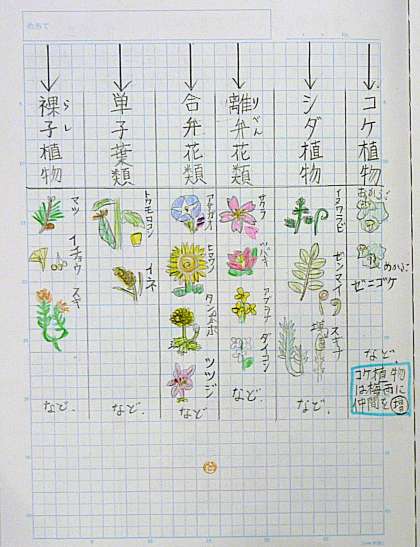 めあて
コケ植物
シダ植物
離弁花類
りべん
合弁花類
単子葉類
裸子植物
らし
おかぶ
めかぶ
ゼニゴケ
など.
コケ植物
は梅雨に
仲間を増
イヌワラビ
ゼンマイ
スギナ
など.
サクラ
ツバキ
アブラナ
ダイコン
など.
アサガオ
ヒマワリ
タンポポ
ツツジ
など.
トウモロコシ
イネ
など.
マツ
イチョウ
スギ
など.